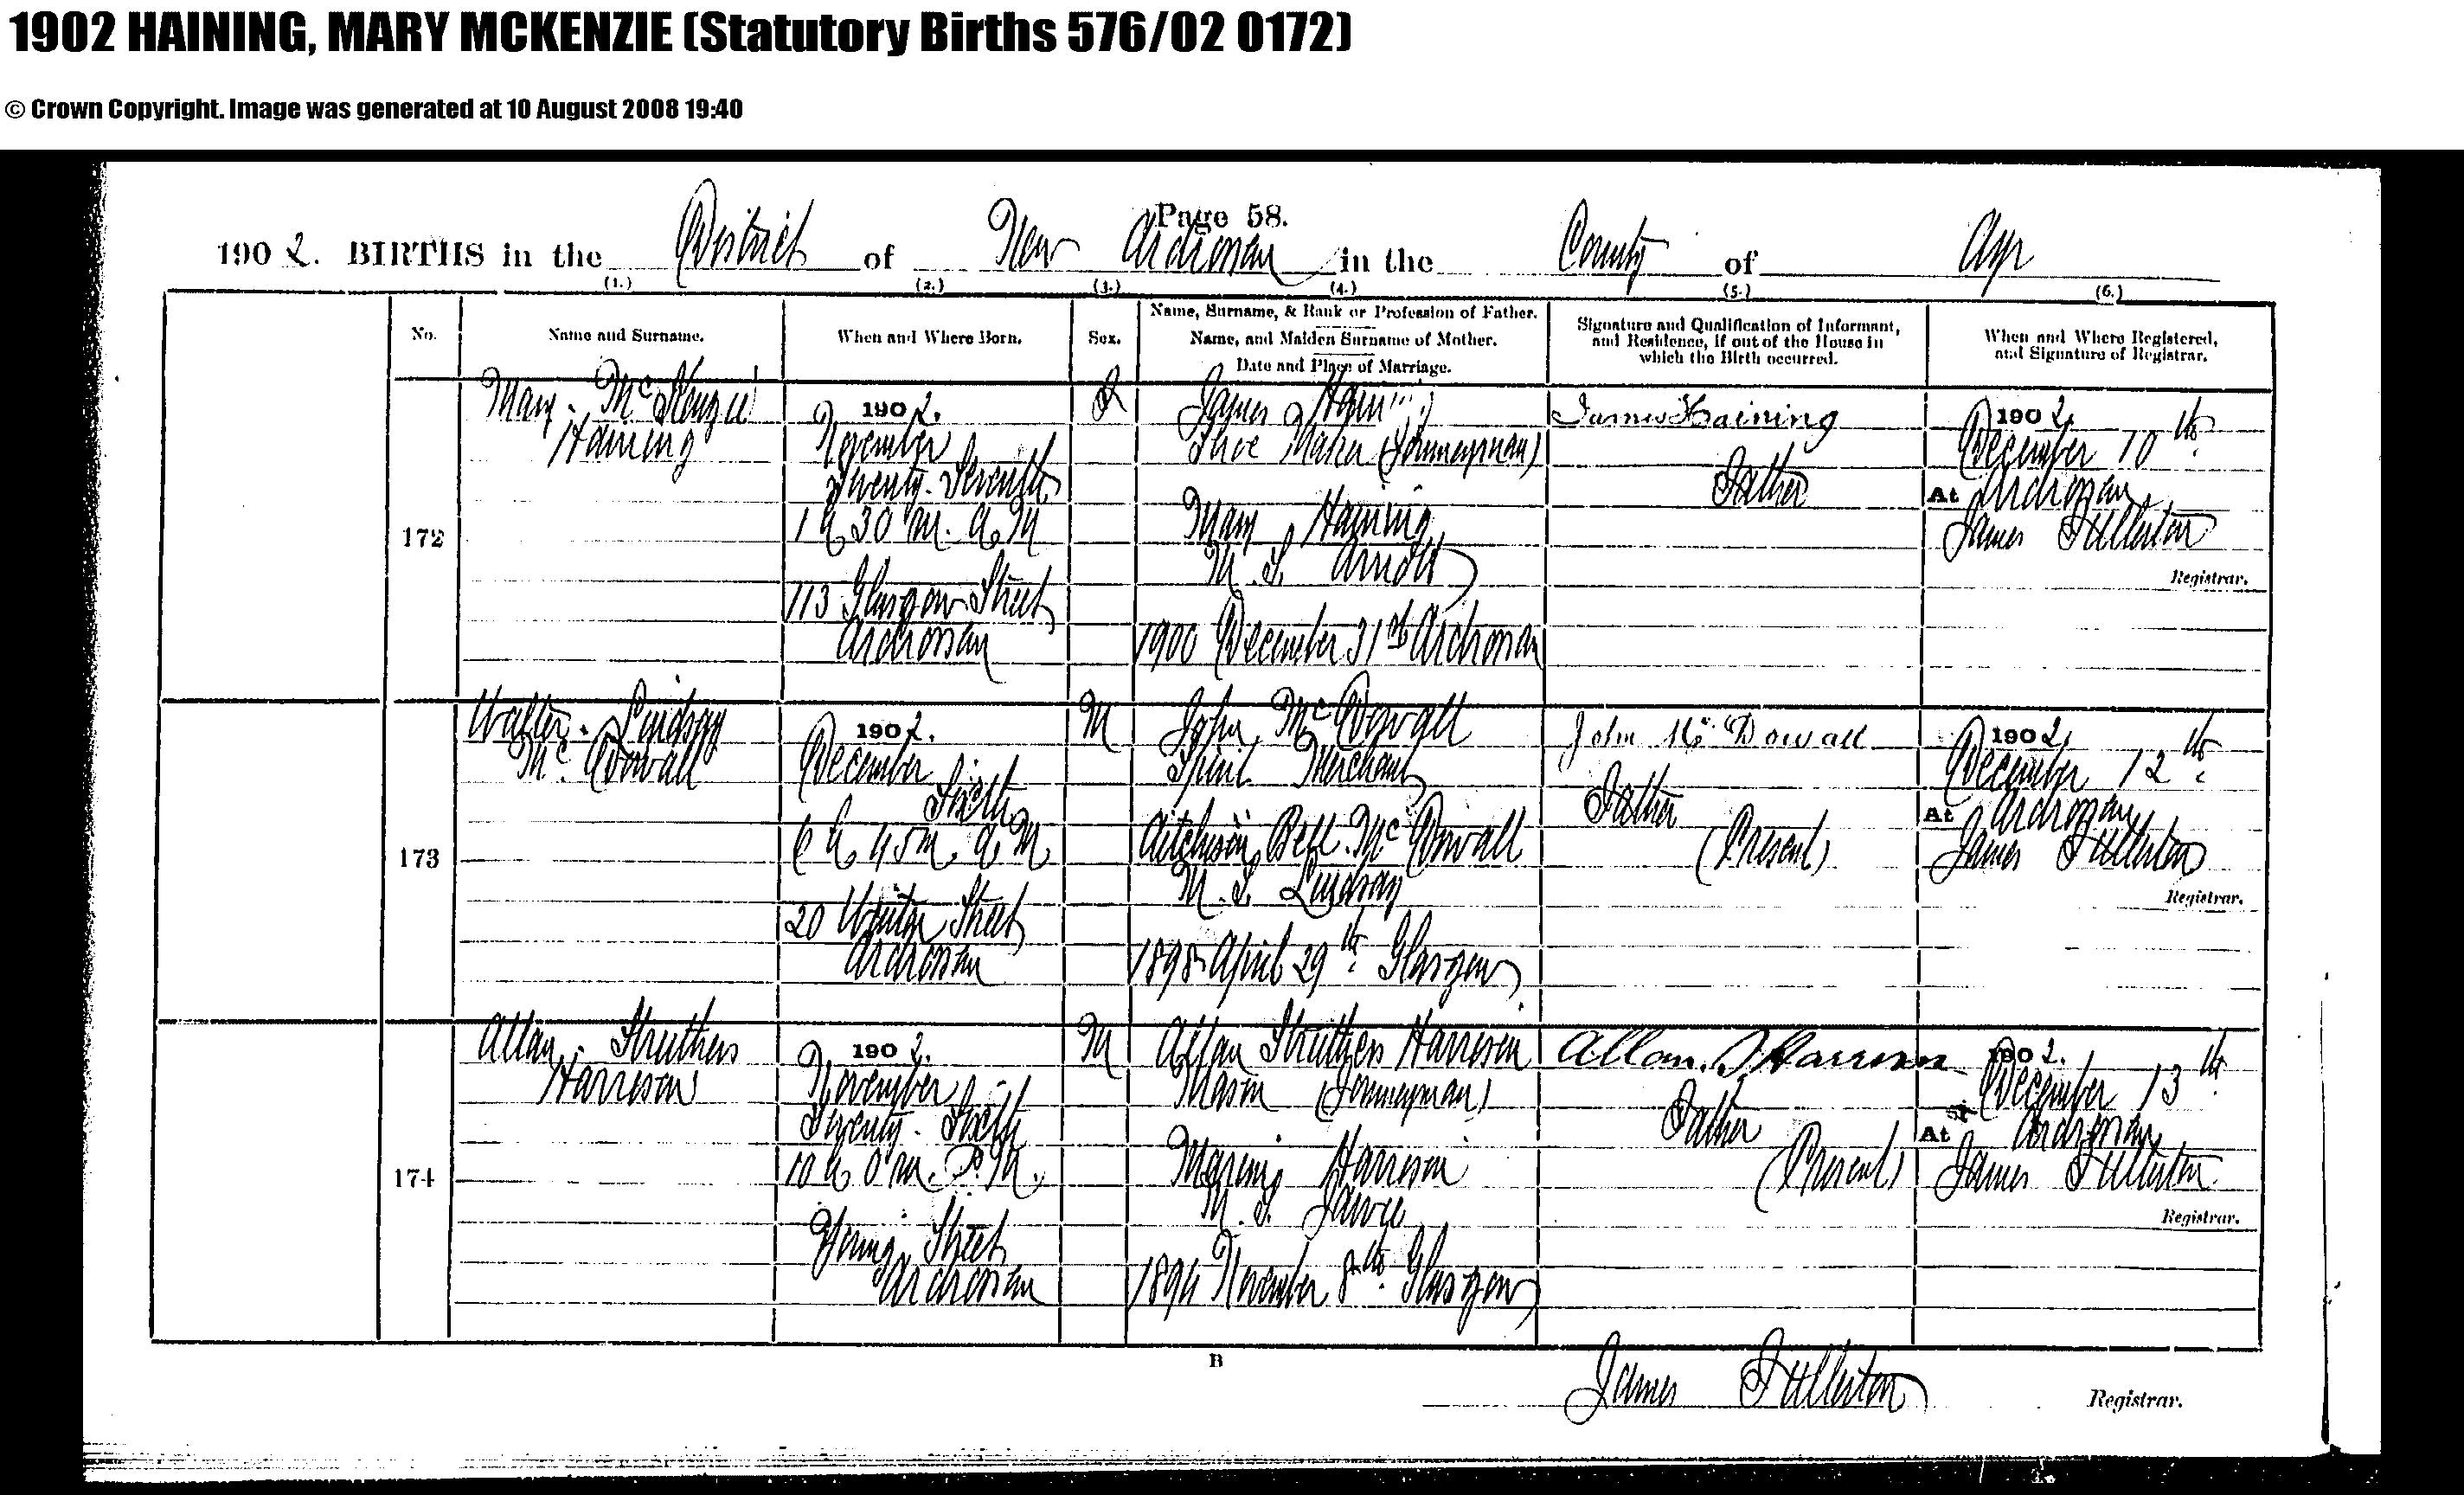 1902 HAINING, MARY MCKENZIE (Statutory Births 576/02 0172)
© Crown Copyright. Image was generated at 10 August 2008 19:40
Page 58.
1902. BIRTHS in the District of New Ardrossan in the County of Ayr
(1.) (2.) (3.) (4.) (5.) (6.)
No.
Name and Surname.
When and Where Born.
Sex.
Name, Surname, & Rank or Profession of Father.
Name, and Maiden Surname of Mother.
Date and Place of Marriage.
Signature and Qualification of Informant,
and Residence, if out of the House in
which the Birth occurred.
When and Where Registered,
and Signature of Registrar.
172
Mary McKenzie
Haining
1902.
November
Twenty-Seventh
1 h 30 m. A M
113 Glasgow Street
Ardrossan
F
James Haining
Shoe Maker (Journeyman)
Mary Haining
M. S. Arnott
1900 December 31st Ardrossan
James Haining
Father
1902
December 10th
At Ardrossan
James Fullerton
Registrar.
173
Walter Lindsay
Mc Dowall
1902.
December
Sixth
6 h 45 m. A M
20 Street
Ardrossan
M
John Mc Dowall
Spirit Merchant
Aitchison Bell Mc Dowall
M. S. Lindsay
1898 April 29th Glasgow
John Mc Dowall
Father
(Present)
1902
December 12th
At Ardrossan
James Fullerton
Registrar.
174
Allan Struthers
Harrison
1902.
November
Twenty-Sixth
10 h 0 m. P. M.
Young Street
Ardrossan
M
Allan Struthers Harrison
Mason (Journeyman)
Harrison
M. S.
November 8th Glasgow
Allan S. Harrison
Father
(Present)
1902.
December 13th
At Ardrossan
James Fullerton
Registrar.
B
James Fullerton Registrar.